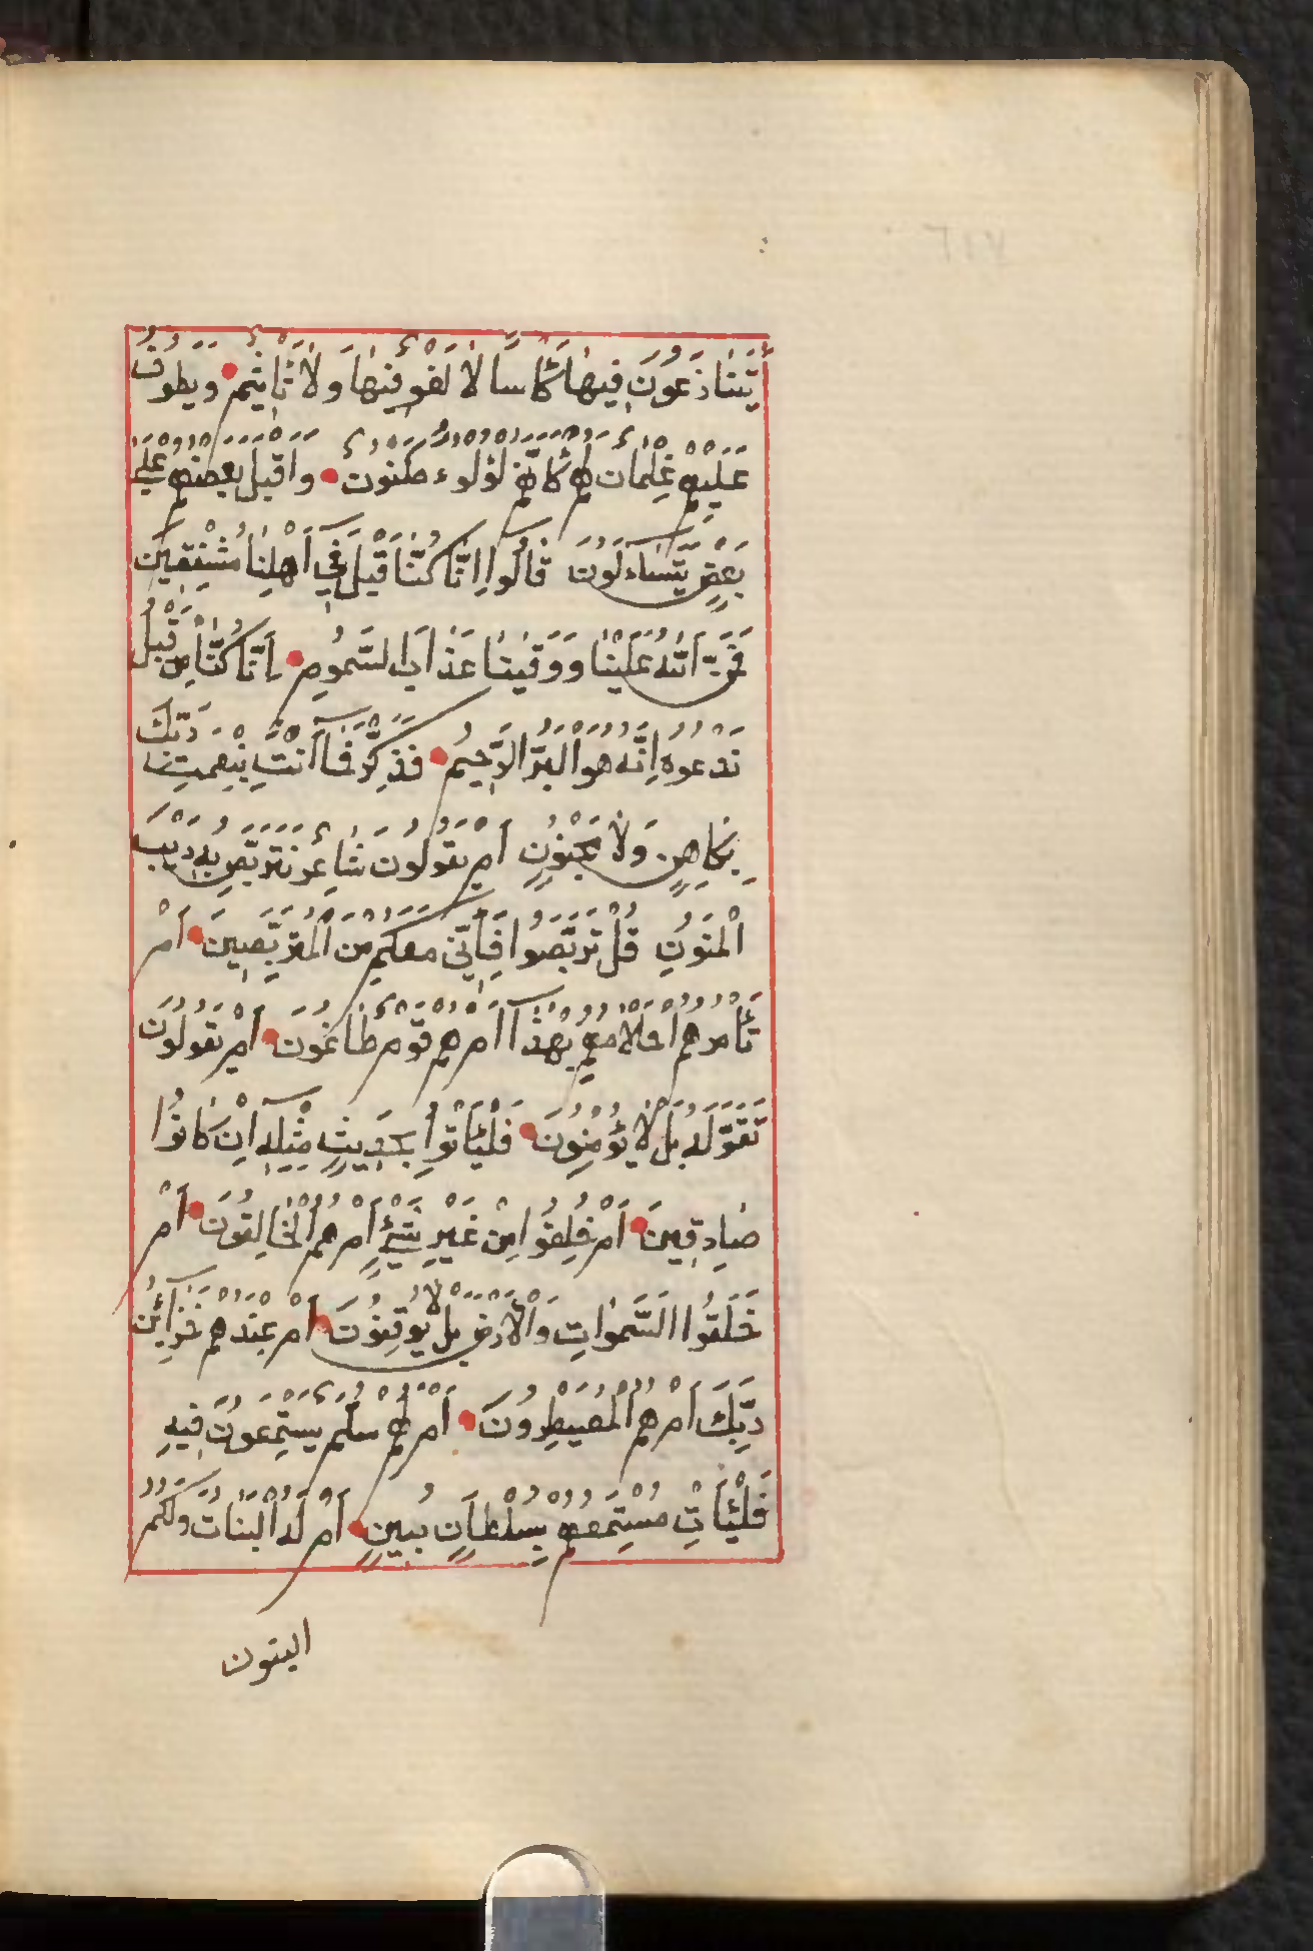 يَتَنَازَعُونَ فِيهَا كَأْسًا لَا لَغْوٌ فِيهَا وَلَا تَأْثِيمٌ وَيَطُوفُ
عَلَيْهِمْ غِلْمَانٌ لَهُمْ كَأَنَّهُمْ لُؤْلُوءٌ مَكْنُونٌ وَأَقْبَلَ بَعْضُهُمْ عَلَى
بَعْضٍ يَتَسَاءَلُونَ قَالُوا إِنَّا كُنَّا قَبْلُ فِي أَهْلِنَا مُشْفِقِينَ
فَمَنَّ اللَّهُ عَلَيْنَا وَوَقَينَا عَذَابَ السَّمُومِ إِنَّا كُنَّا مِنْ قَبْلُ
نَدْعُوهُ إِنَّهُ هُوَ الْبَرُّ الرَّحِيمُ فَذَكِّرْ فَمَا أَنْتَ بِنِعْمَتِ رَبِّكَ
بِكَاهِنٍ وَلَا مَجْنُونٍ أَمْ يَقُولُونَ شَاعِرٌ نَتَرَبَّصُ بِهِ رَيْبَ
الْمَنُونِ قُلْ تَرَبَّصُوا فَإِنِّي مَعَكُمْ مِنَ الْمُتَرَبِّصِينَ أَمْ
تَأْمُرُهُمْ أَحْلَامُهُمْ بِهَذَا أَمْ هُمْ قَوْمٌ طَاغُونَ أَمْ يَقُولُونَ
تَقَوَّلَهُ بَلْ لَا يُؤْمِنُونَ فَلْيَأْتُوا بِحَدِيثٍ مِثْلِهِ إِنْ كَانُوا
صَادِقِينَ أَمْ خُلِقُوا مِنْ غَيْرِ شَيْءٍ أَمْ هُمُ الْخَالِقُونَ أَمْ
خَلَقُوا السَّمَوَاتِ وَالْأَرْضَ بَلْ لَا يُوقِنُونَ أَمْ عِنْدَهُمْ خَزَائِنُ
رَبِّكَ أَمْ هُمُ الْمُصَيْطِرُونَ أَمْ لَهُمْ سُلَّمٌ يَسْتَمِعُونَ فِيهِ
فَلْيَأْتِ مُسْتَمِعُهُمْ بِسُلْطَانٍ مُبِينٍ أَمْ لَهُ الْبَنَاتُ وَلَكُمُ
البنون